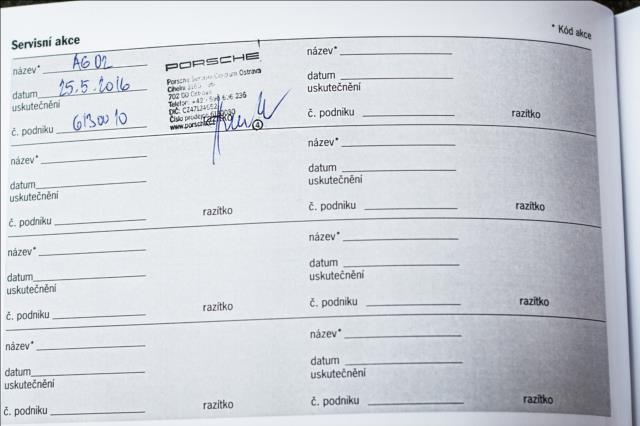 * Kód akce
Servisní akce
název* AG02
datum 25.5.2016
uskutečnění
č. podniku 6130010
PORSCHE
Ostrava
702 00
Telefon: +42
236
www.porsche
razítko
4
název*
datum
uskutečnění
č. podniku razítko
název*
datum
uskutečnění
č. podniku razítko
název*
datum
uskutečnění
č. podniku razítko
název*
datum
uskutečnění
č. podniku razítko
název*
datum
uskutečnění
č. podniku razítko
název*
datum
uskutečnění
č. podniku razítko
název*
datum
uskutečnění
č. podniku razítko